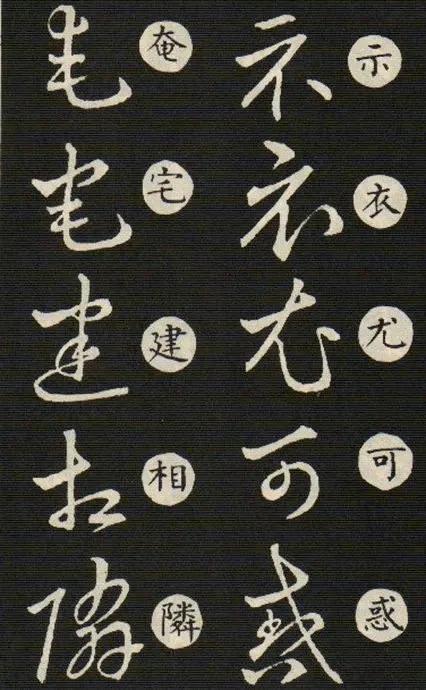 示衣尤可惑
示衣尤可惑
奄宅建相隣
奄宅建相隣